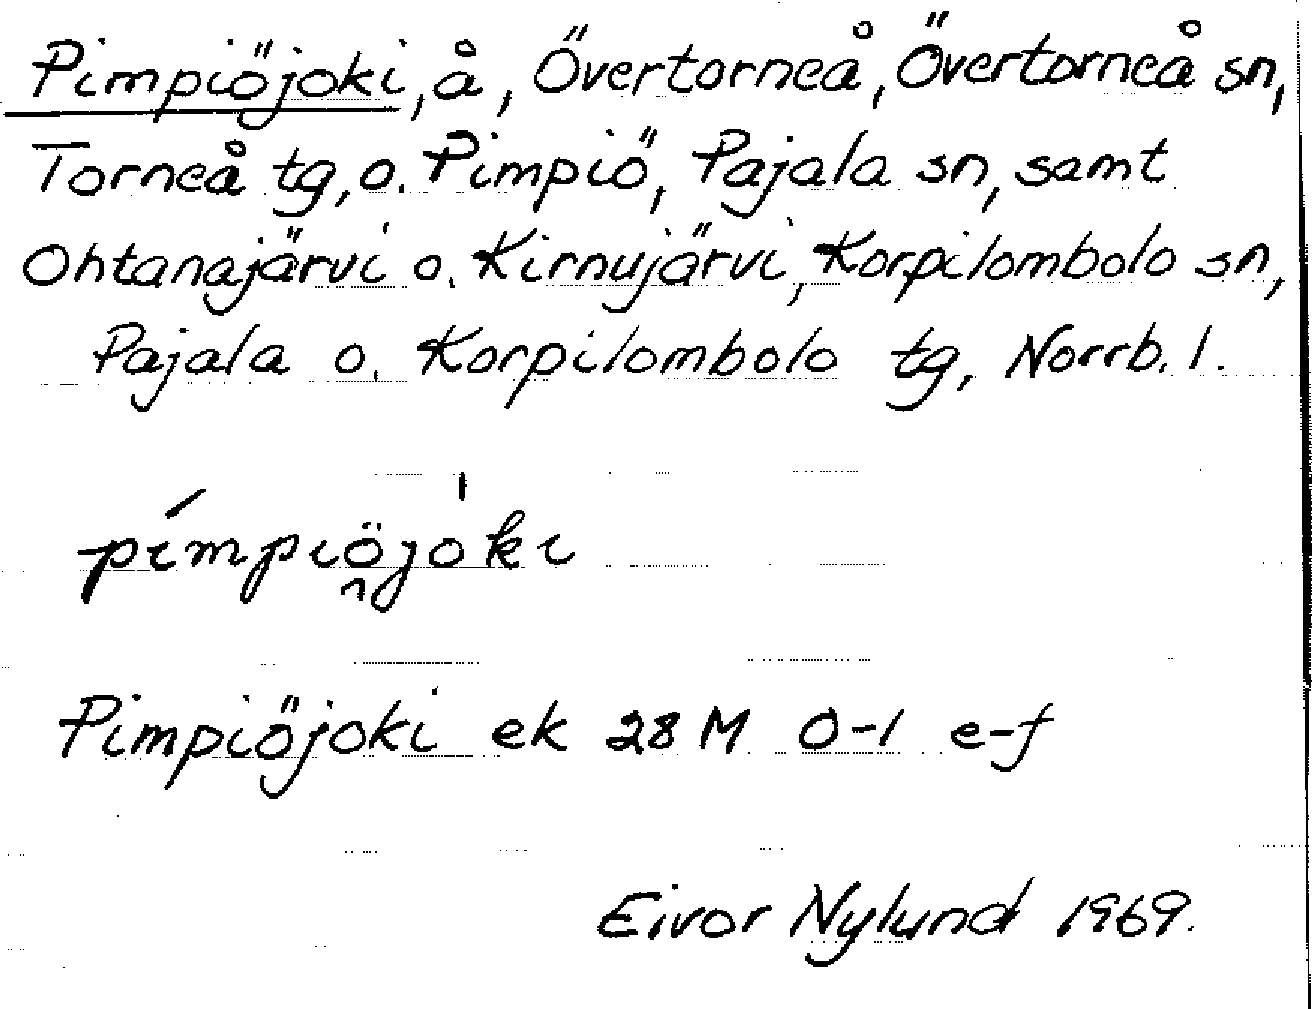 Pimpiöjoki, å, Övertorneå, Övertorneå sn,
Torneå tg, o. Pimpiö, Pajala sn, samt
Ohtanajärvi o. Kirnujärvi, Korpilombolo sn,
Pajala o. Korpilombolo tg, Norrb. l.
pímpiö̯jo̍ki
Pimpiöjoki ek 28 M 0-1 e-f
Eivor Nylund 1969.